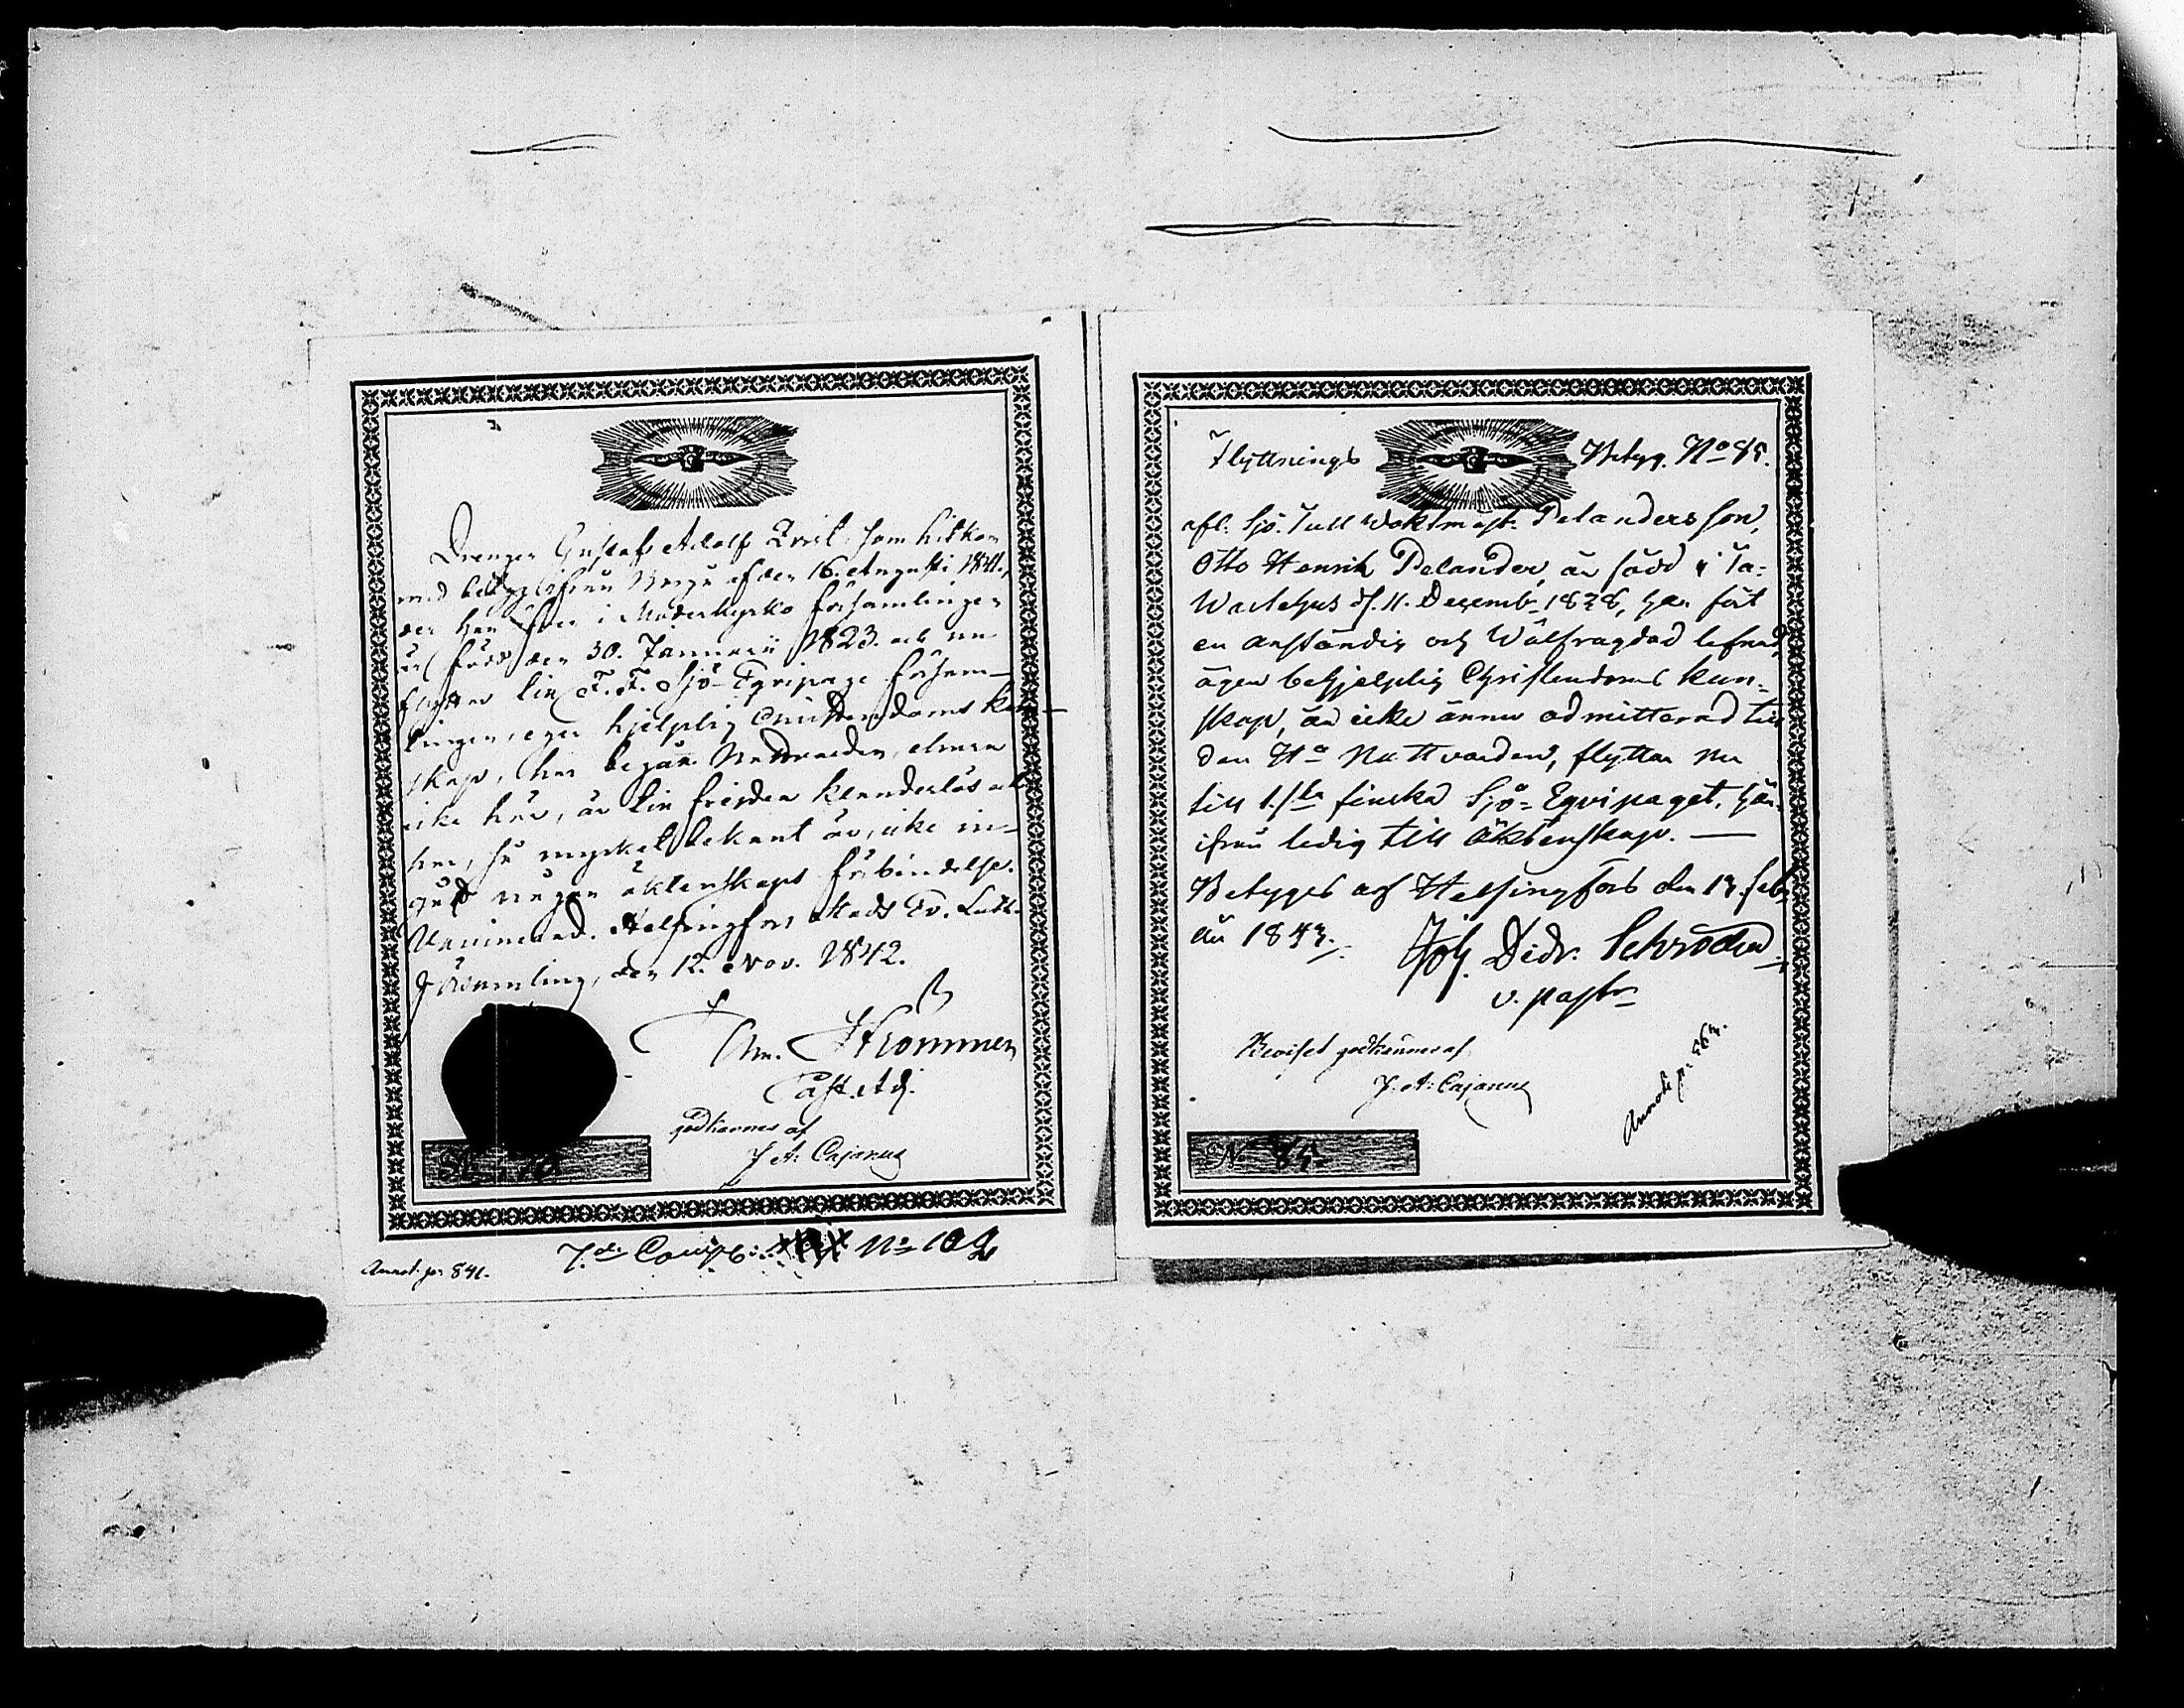 Drengen Gustaf Adolf som hitkom
med betyg ifrån Borgå af den 16. Augusti 1841.,
der han i Moderkyrko församlingen
är född den 30. Januarii 1823. och nu
flyttar till F. F. Sjö-Eqvipage församlingen
lingen, eger hjelplig Christendoms kun-
skap, har begått Nattvarden, ehuru
icke här, är till frejden klanderlös och
har, så mycket bekant är, icke in-
gått någon äktenskaps förbindelse.
Vaccinerad. Helsingfors Stads Ev. Luth.
Församling, den 12. Nov. 1842.
Chr. Strommer
Past. Adj.
godkännes af
J. A. Cajanus
Annot. pag 841.
7.de Comp: No 102
Flyttnings Betyg. No 85.
afl. Sjö-Tull Waktmäst. Pelanders son,
Otto Henrik Pelander, är född i Ta=
wastehus d. 11. Decemb. 1828, har fört
en anständig och Wälfrägdad lefnad,
äger behjelplig Christendoms kun=
skap, är icke ännu admitterad till
den Ha Nattvarden, flyttar nu
till 1.sta finska Sjö=Eqvipaget, här
ifrån ledig till äktenskap. —
Betyges af Helsingfors den 13. feb.
år 1843.
Joh. Didr. Schröder
v. past.
Beviset godkännes af
J. A. Cajanus
Annot. p. 563.
No 85